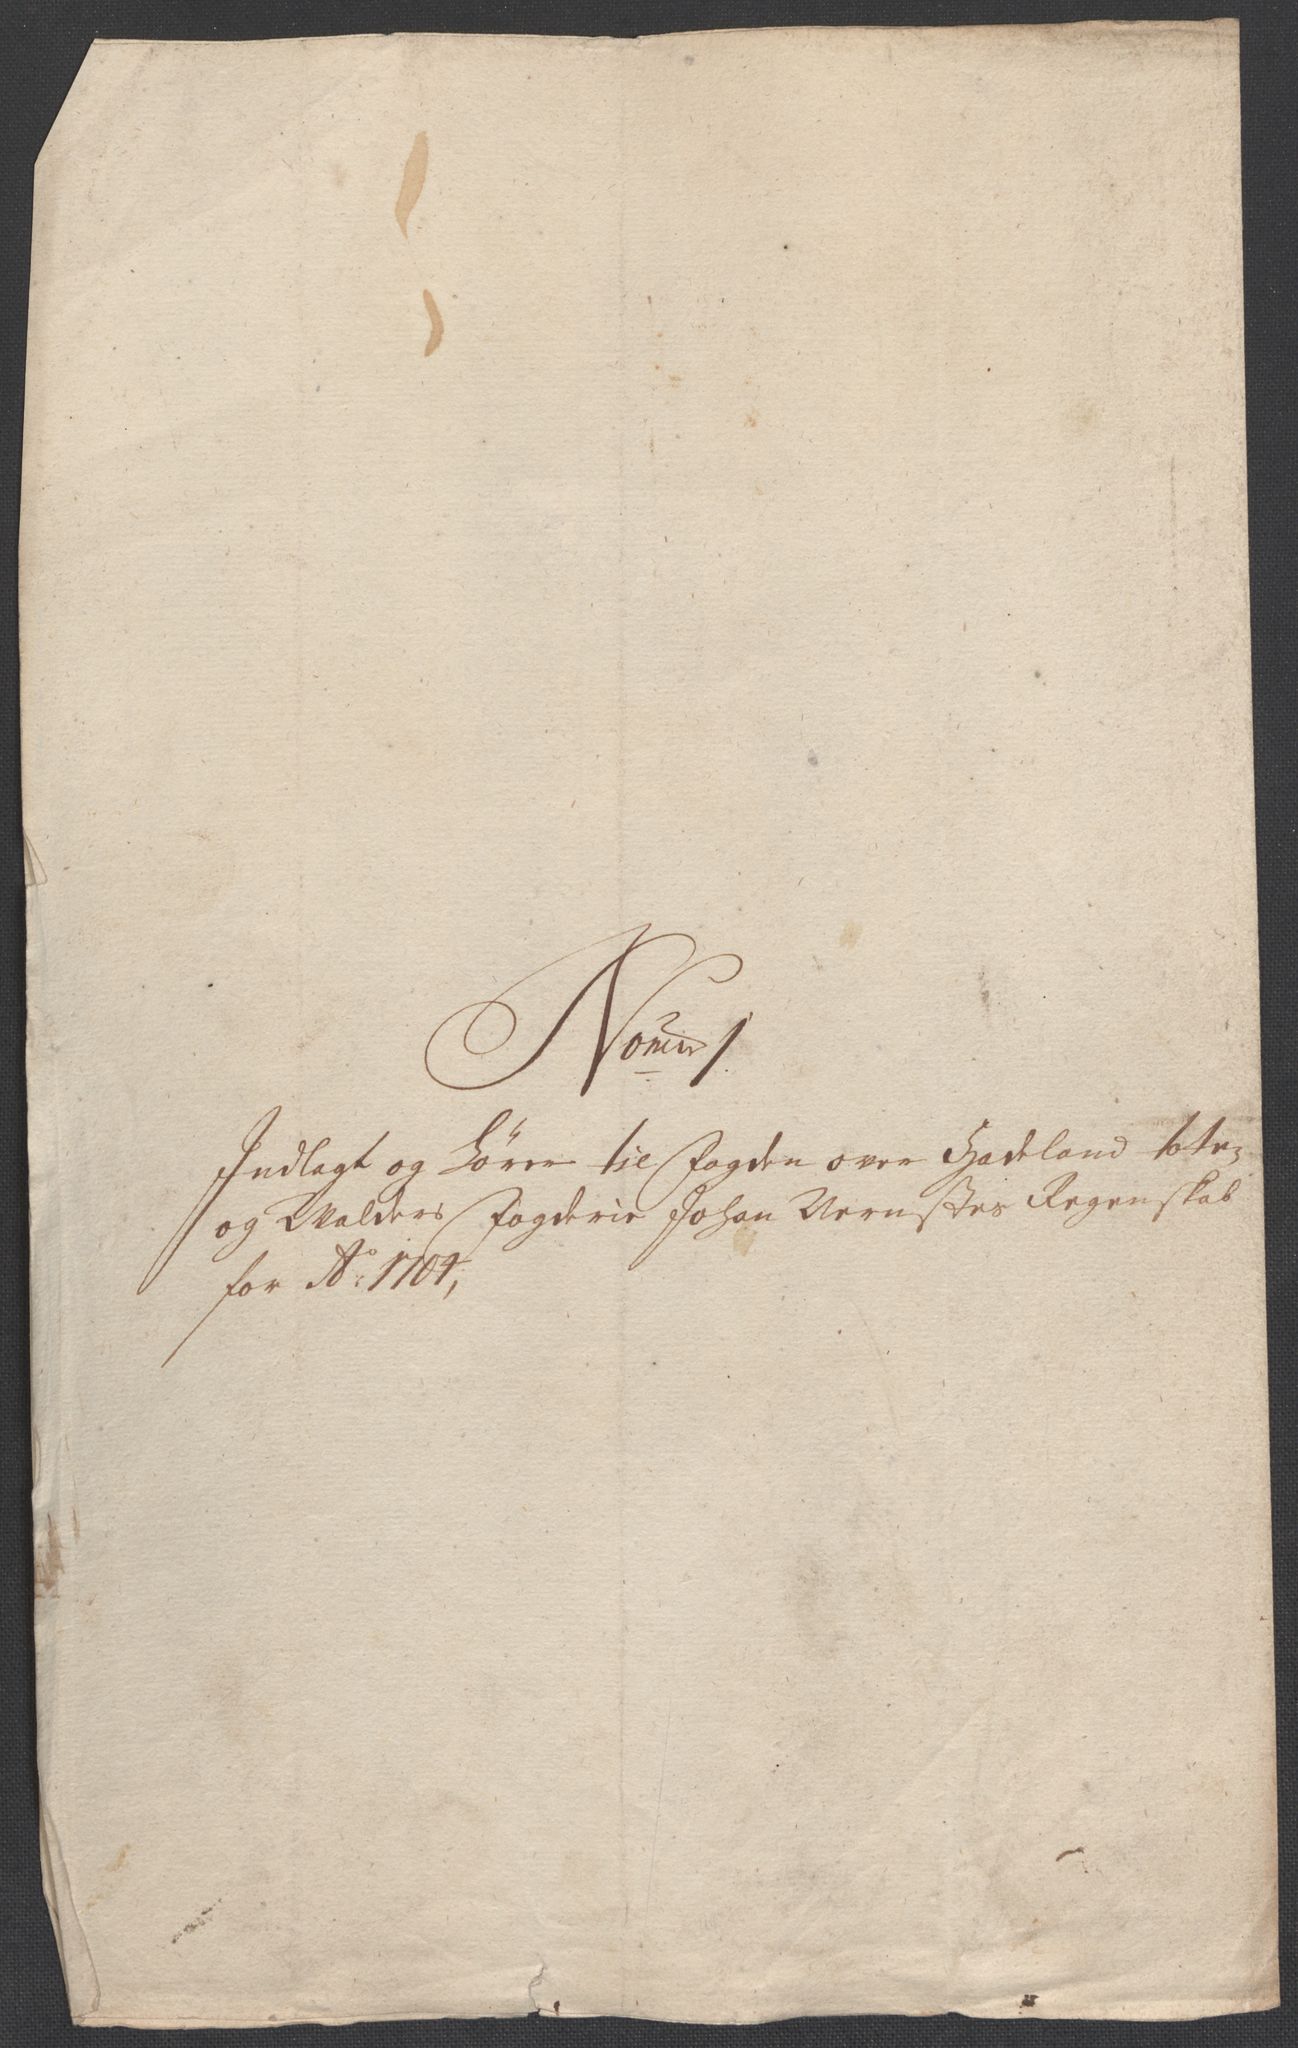 Nomr 1
Indlagt og hörer til fogden over Hadeland toten
og Walders fogderie Johan Vernstes Regenskab
for Aº: 1704,